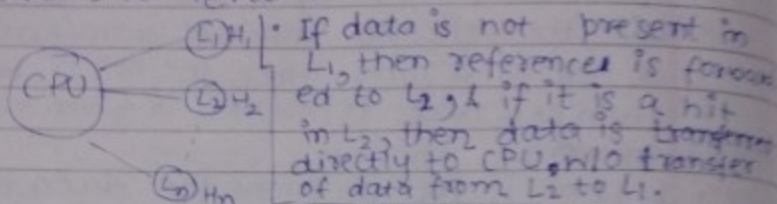 CPU
L1 H1
L2 H2
Ln Hn
• If data is not present in
L1, then references is forward
ed to L2, & if it is a hit
in L2, then data is
directly to CPU, w/o transfer
of data from L2 to L1.